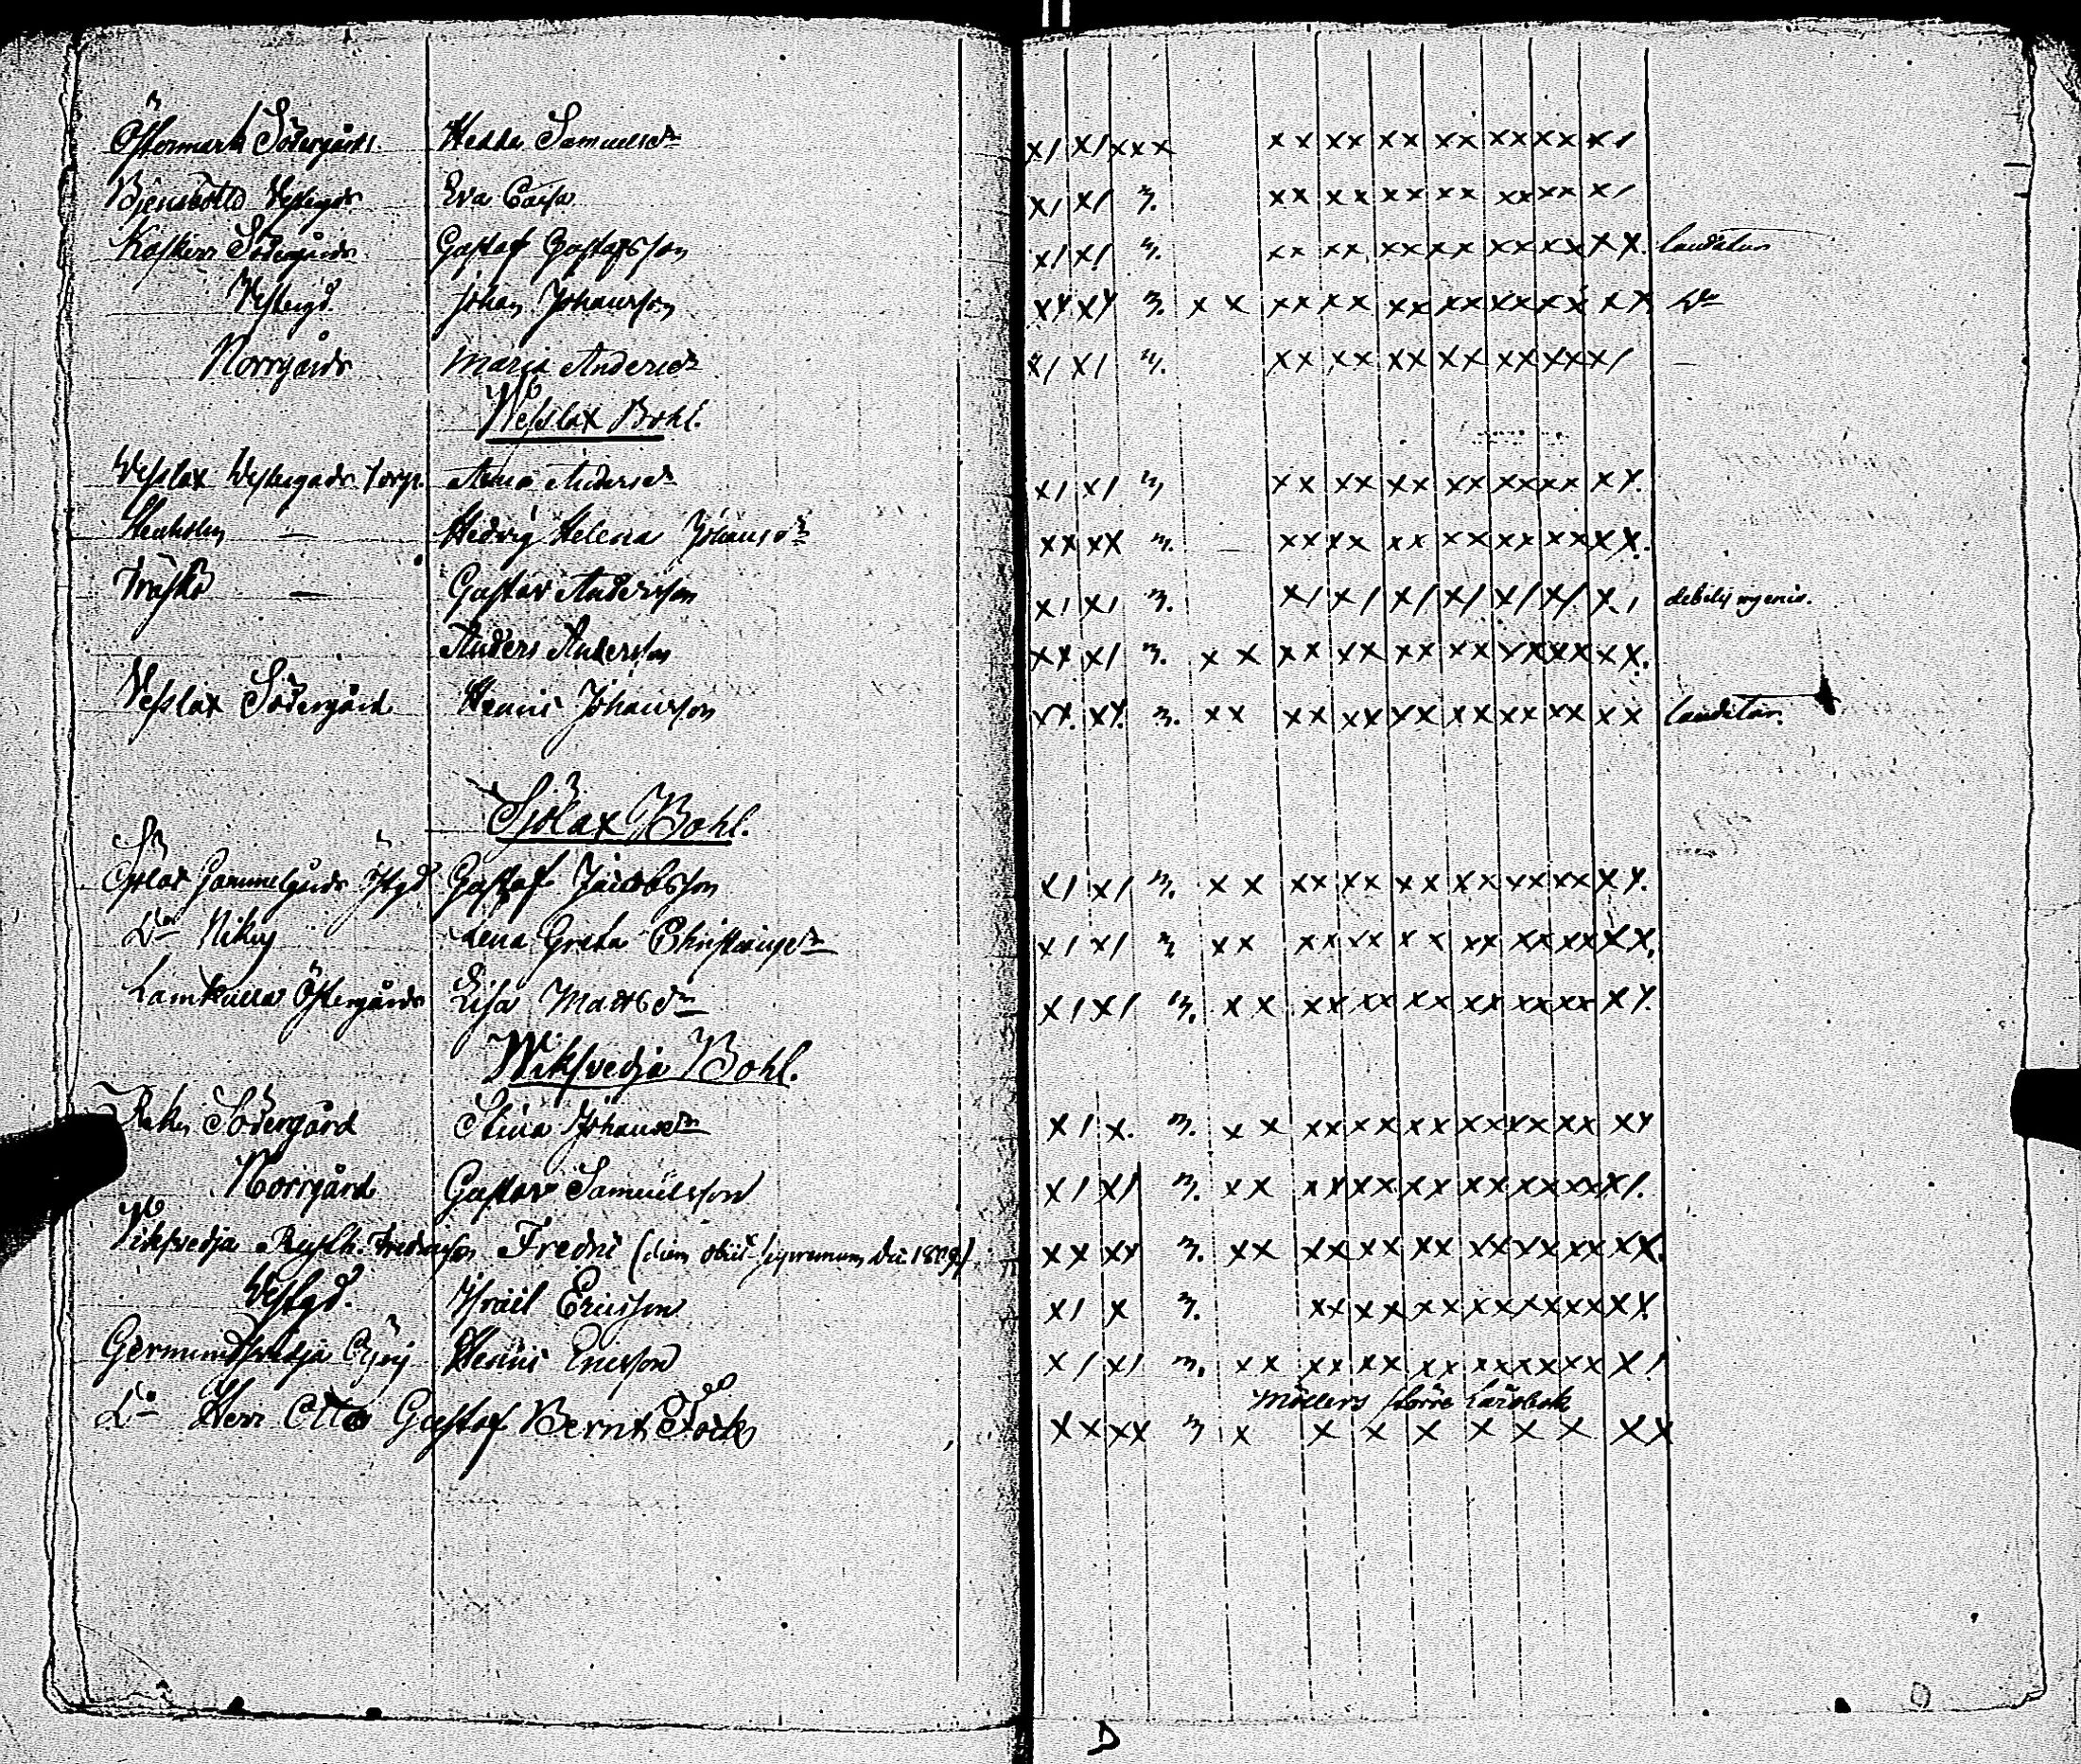 Östermark Södergårds. Hedda Samuelsdr x/ x/ x x x xx xx xx xx xx xx x/
Eva Caisa x/ x/ 3. xx xx xx xx xx xx x/
Södergårds Gustaf Gustafsson x/ x/ 3. xx xx xx xx xx xx xx. laudatur
Vestergd Johan Johansson xx xx 3. x x xx xx xx xx xx xx xx Do
Norrgårds Maria Andersdr x/ x/ 3. xx xx xx xx xx xx x/
Wesslax Bohl.
Wesslax Westergårds torp. Anna Andersdr x/ x/ 3 xx xx xx xx xx xx xx.
— Hedvig Helena Johansdr xx xx 3. — xx xx xx xx xx xx xx.
Träskö — Gustav Andersson x/ x/ 3. x/ x/ x/ x/ x/ x/ x/ debilis ingenio.
Anders Andersson xx x/ 3. x x xx xx xx xx xx xx xx.
Vesslax Södergård Henric Johansson xx. xx. 3. xx xx xx xx xx xx xx xx laudatur.
Sjölax Bohl.
Sjölax Gammelgårds Östgd Gustaf Jacobsson x/ x/ 3. x x xx xx xx xx xx xx xx.
Do Nikus Lena Greta x/ x/ 3 xx xx xx xx xx xx xx xx.
Lamkulla Östergårds Lisa Mattsdr x/ x/ 3. x x xx xx xx xx xx xx xx
Wiksvedja Bohl.
Södergård Stina Johansdr x/ x. 3. x x xx xx xx xx xx xx xx
Norrgård Gustav Samuelsson x/ x/ 3. xx xx xx xx xx xx xx x/.
Viksvedja Fredric (diem obiit supremum xx xx 3. xx xx xx xx xx xx xx xx.
Vestgd. Israel Ericsson x/ x 3. xx xx xx xx xx xx xx
Germundsvedja Henric Ericsson x/ x/ 3. xx xx xx xx xx xx xx x/
Möllers större Lärobok
Do Herr Otto Gustaf Bernt xx xx 3 x x x x x x x xx
D